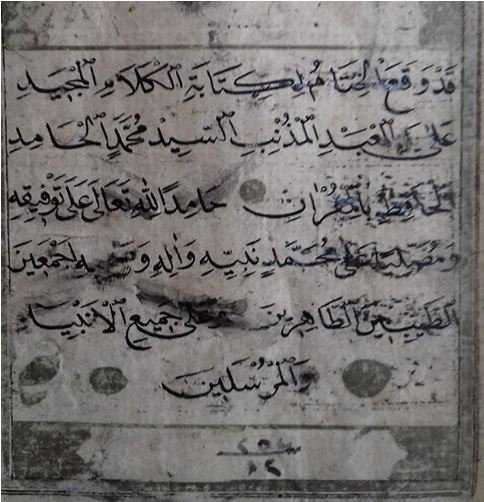 قَدْ وَقَعَ الْخِتَامُ لِكِتَابَةِ الْكَلَامِ الْمَجِيدِ
عَلَى يَدِ الْعَبْدِ الْمُذْنِبِ السَّيِّدْ مُحَمَّدَ الْحَامِدِ
الْحَافِظِ بِالْقُرْآنِ حَامِدًا لِلّٰهِ تَعَالَى عَلَى تَوْفِيقِهِ
وَمُصَلِّيًا عَلَى مُحَمَّدٍ نَبِيِّهِ وَاٰلِهِ اَجْمَعِينَ
الطَّيِّبِينَ الطَّاهِرِينَ وَعَلَى جَمِيعِ الْاَنْبِيَا
وَالْمُرْسَلِينَ